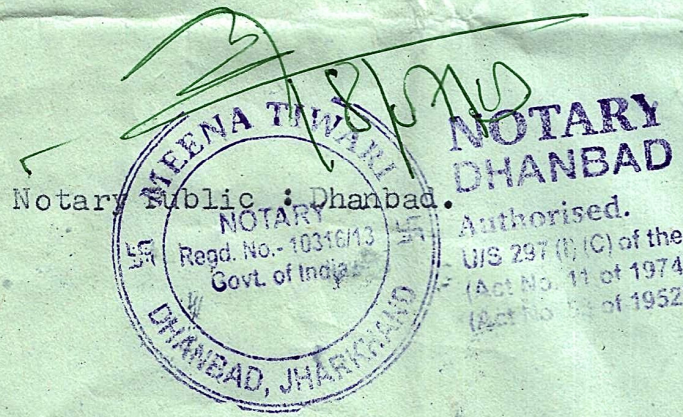 Notary Public : Dhanbad.
MEENA TIWARI
NOTARY
Regd. No.- 10316/13
Govt. of India
DHANBAD, JHARKHAND
NOTARY
DHANBAD
Authorised.
U/S 297 (I) (C) of the
(Act No. 11 of 1974
(Act No of 1952